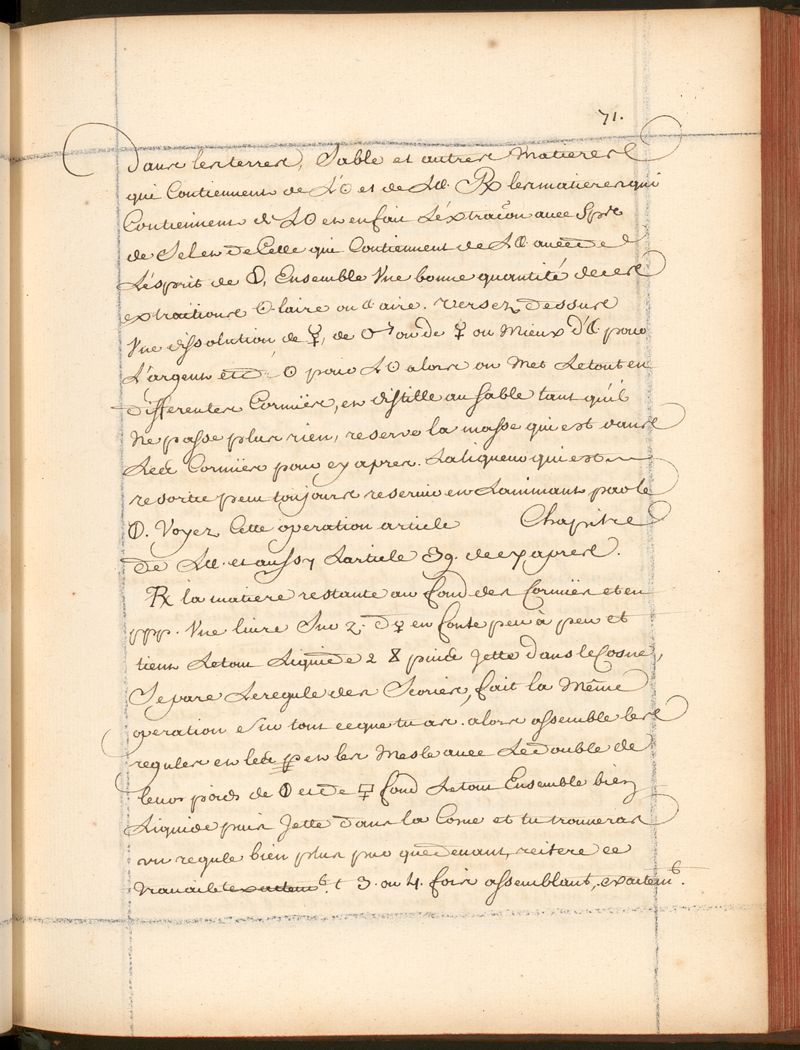 71.
Dans les terres, Sable et autres Matieres
qui Contiennent de L'☉ et de La☾. ℞ les matieres qui
Contiennent de L☉ et en fait L'éxtraçõn avec Sprt
de Sel et de Celle qui Contiennent de L☾ avec de
L'ésprit de 🜕, Ensemble Vne bonne quantité de ces
extractions ☉laire ou ☾aire. Versez dessus
Vne dissolution de ☿, de ♂ ou de ♀ ou Mieux d'☾ pour
L'argent et d'☉ pour L☉ alors on Met Le tout en
differentes Cornües, en distille au sable tant qu'il
Ne passe plus rien, reserve la masse qui est dans
Les Cornües pour cy apres. La liqueur qui est
resortie peut toujours reservir en Lanimant par le
🜕. Voyez Cette operation article Chapitre
de La☾. et aussy Larticle 39. de cy apres.
℞ la matiere restante au fond des Cornües et en
ppp. Vne livre Sur 2. d ♀ en fonte peu à peu et
tiens Le tout Liquide 2 puis Jette dans le Cosne,
Separe Le regule des Scories, fait la Même
operation Sur tout ce que tu as. alors assemble les
regules en les et en les Mesle avec Le double de
leur poids de 🜕 et de fond Le tout Ensemble bien
Liquide puis Jette dans la Cone et tu trouveras
un regule bien plus pur que devant, reitere ce
travail exactem.t 3. ou 4. fois assemblant, exactem.t